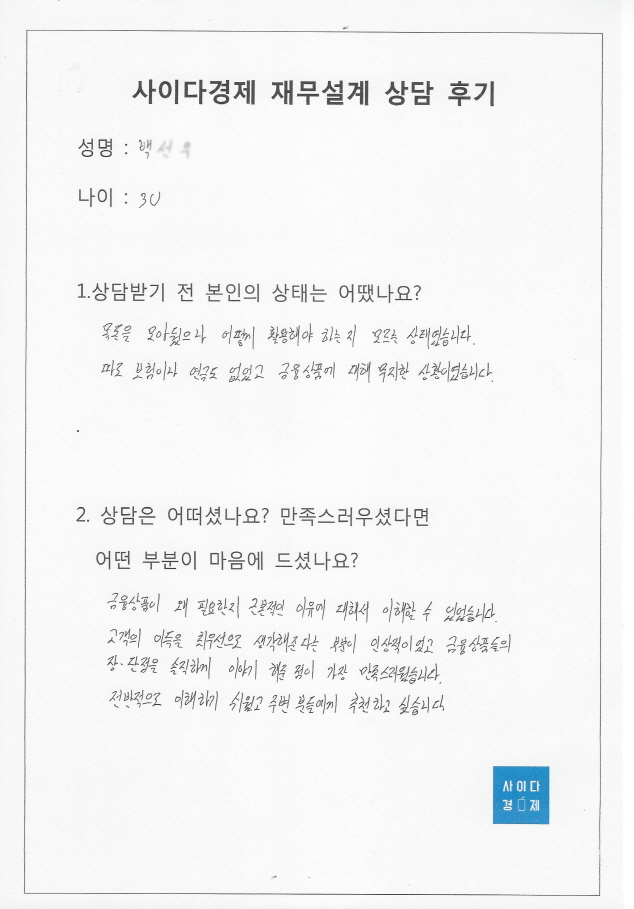 사이다경제 재무설계 상담 후기
성명 : 백
나이 : 30
1.상담받기 전 본인의 상태는 어땠나요?
목돈을 모아뒀으나 어떻게 활용해야 하는지 모르는 상태였습니다.
따로 보험이나 연금도 없었고 금융상품에 대해 무지한 상황이었습니다.
.
2. 상담은 어떠셨나요? 만족스러우셨다면
어떤 부분이 마음에 드셨나요?
금융상품이 왜 필요한지 근본적인 이유에 대해서 이해할 수 있었습니다.
고객의 이득을 최우선으로 생각해준다는 부분이 인상적이었고 금융상품들의
장·단점을 솔직하게 이야기 해준 점이 가장 만족스러웠습니다.
전반적으로 이해하기 쉬웠고 주변 분들에게 추천하고 싶습니다
사이다
경제